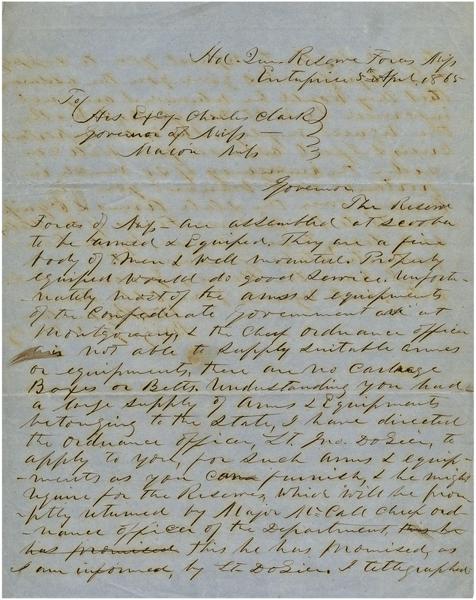 Hd. Qurs Reserve Forces Miss
Enterprise 5th April, 1865
To
His Excy Charles Clark
Governor of Miss—
Macon Miss
Governor
The Reserve
Forces of Miss— are assembled at Scooba
to be armed & Equiped. They are a fine
body of men & well mounted. Properly
equiped would do good service. Unfortu-
-nately most of the arms & equipments
of the Confederate government are at
Montgomery, & the Chief Ordnance officer
is not able to supply suitable arms
or equipments, there are no Cartrage
Boxes or Belts. Understanding you had
a large supply of Arms & Equipments
belonging to the State, I have directed
the Ordnance officer, Lt. Jno. DoZier, to
apply to you, for such arms & equip-
-ments as you can furnish, & he might
require for the Reserves, which will be prom-
-ptly returned by Major McCall Chief ord-
-nance officer of the Department, this he
has promised this he has promised, as
I am informed, by Lt. DoZier. I telegraphed